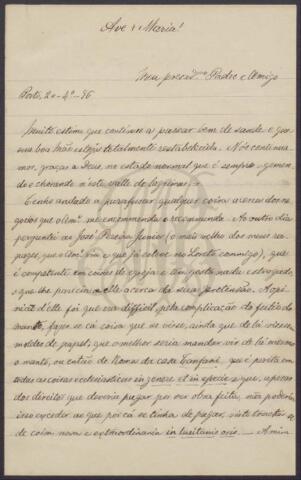 Ave + Maria!
Meu presad.mo Padre e Amigo
Porto, 20-4º-96
Muito estimo que continue a passar bem de saude e que
sua boa Mãe esteja totalmente restabelecida. Nós continua-
mos, graças a Deus, no estado normal que é sempre - gemen-
do e chorando n'este valle de lagrimas.
Tenho andado a parafusar qualquer coisa acerca dos ne-
gocios que o Am.º me encommenda e recommenda. Ao outro dia
perguntei ao José Pereira Junior, (o mais velho dos meus ra-
pazes, que o Am.º viu e que já esteve no Loreto commigo), que
é competente em coisas de egreja e tem gosto nada estragado,
o que lhe parecia a elle acerca da sua pretensão. A opi-
nião d'elle foi que era difficil, pela complicação do feitio do
manto, fazer-se cá coisa que se visse, ainda que de lá viessem
moldes de papel; que o melhor seria mandar vir de lá mesmo
o manto, ou então de Roma da casa Tanfani, que é perita em
todas as coisas ecclesiasticas in genere et in specie e que, apesar
dos direitos que deveria pagar por ser obra feita, não poderia
isso exceder ao que por cá se tinha de pagar, visto tractar-se
de coisa nova e extraordinaria in lusitanis oris. - A mim